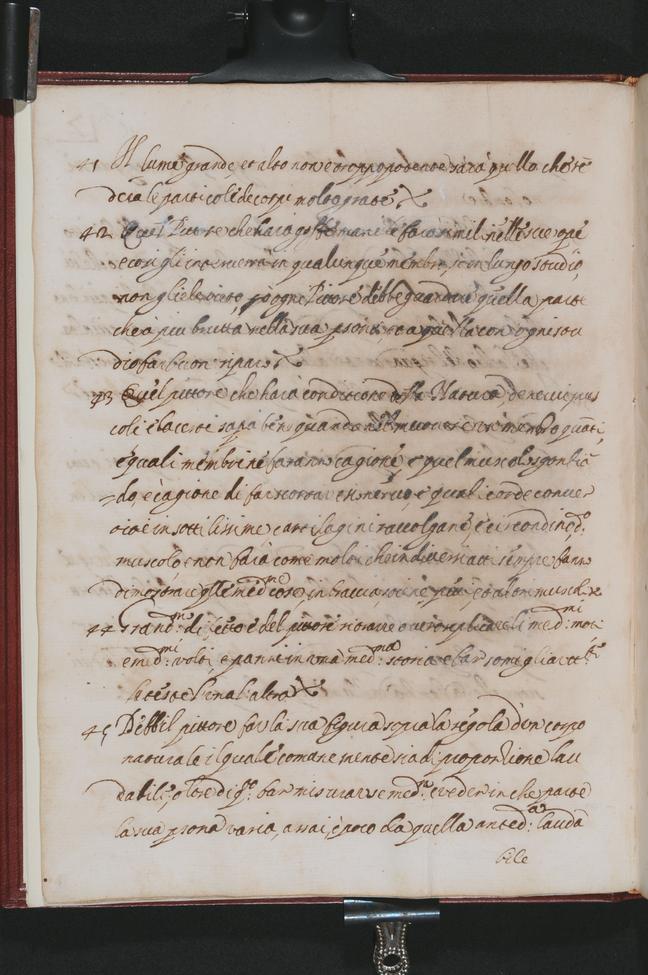 41 Il lume grande, et alto non troppo potente sarà quello che rē
derà le particole de corpi molto grate
42 Quel Pittore che harà goffe mani le farà simili nelle sue opē
e così gli interverrà in qualunque membro, se un lungo studio,
non glielo vieta, pō ogni Pittore debbe guardare quella parte
che à piu brutta nella sua psona et a quella con ogni stu
dio far buon riparo
43 Quel pittore che harà cognitione della Natura, de nervi, mus
coli e lacerti saprà bene quando nel muovere un membro quāti,
e quali membri ne faranno cagione, e quel muscolo sgonfiā
do, è cagione di far raccortar esso nervo, e quali corde conver
tite in sottilissime cartilagini ravolgano, e circondino d.º
muscolo e non farà come molti che in diversi atti sempre fanno
dimostrare q̃lle med.me cose in braccia, schiene, petti, et altri muscoli
44 Grand.mo difetto è del pittore ritrarre o vero replicare li med.mi moti
e med.mi volti, e panni in una med.ma storia e far somigliar tt.e
le teste l'una l'altra
45 Debbe il pittore far la sua figura sopra la regola d'un corpo
naturale il quale comunemente sia di proportione lau
dabile, oltre di q.o far misurar se med.mo e veder in che parte
la sua psona varia, assai, o poco da quella anted.a laudā
bile